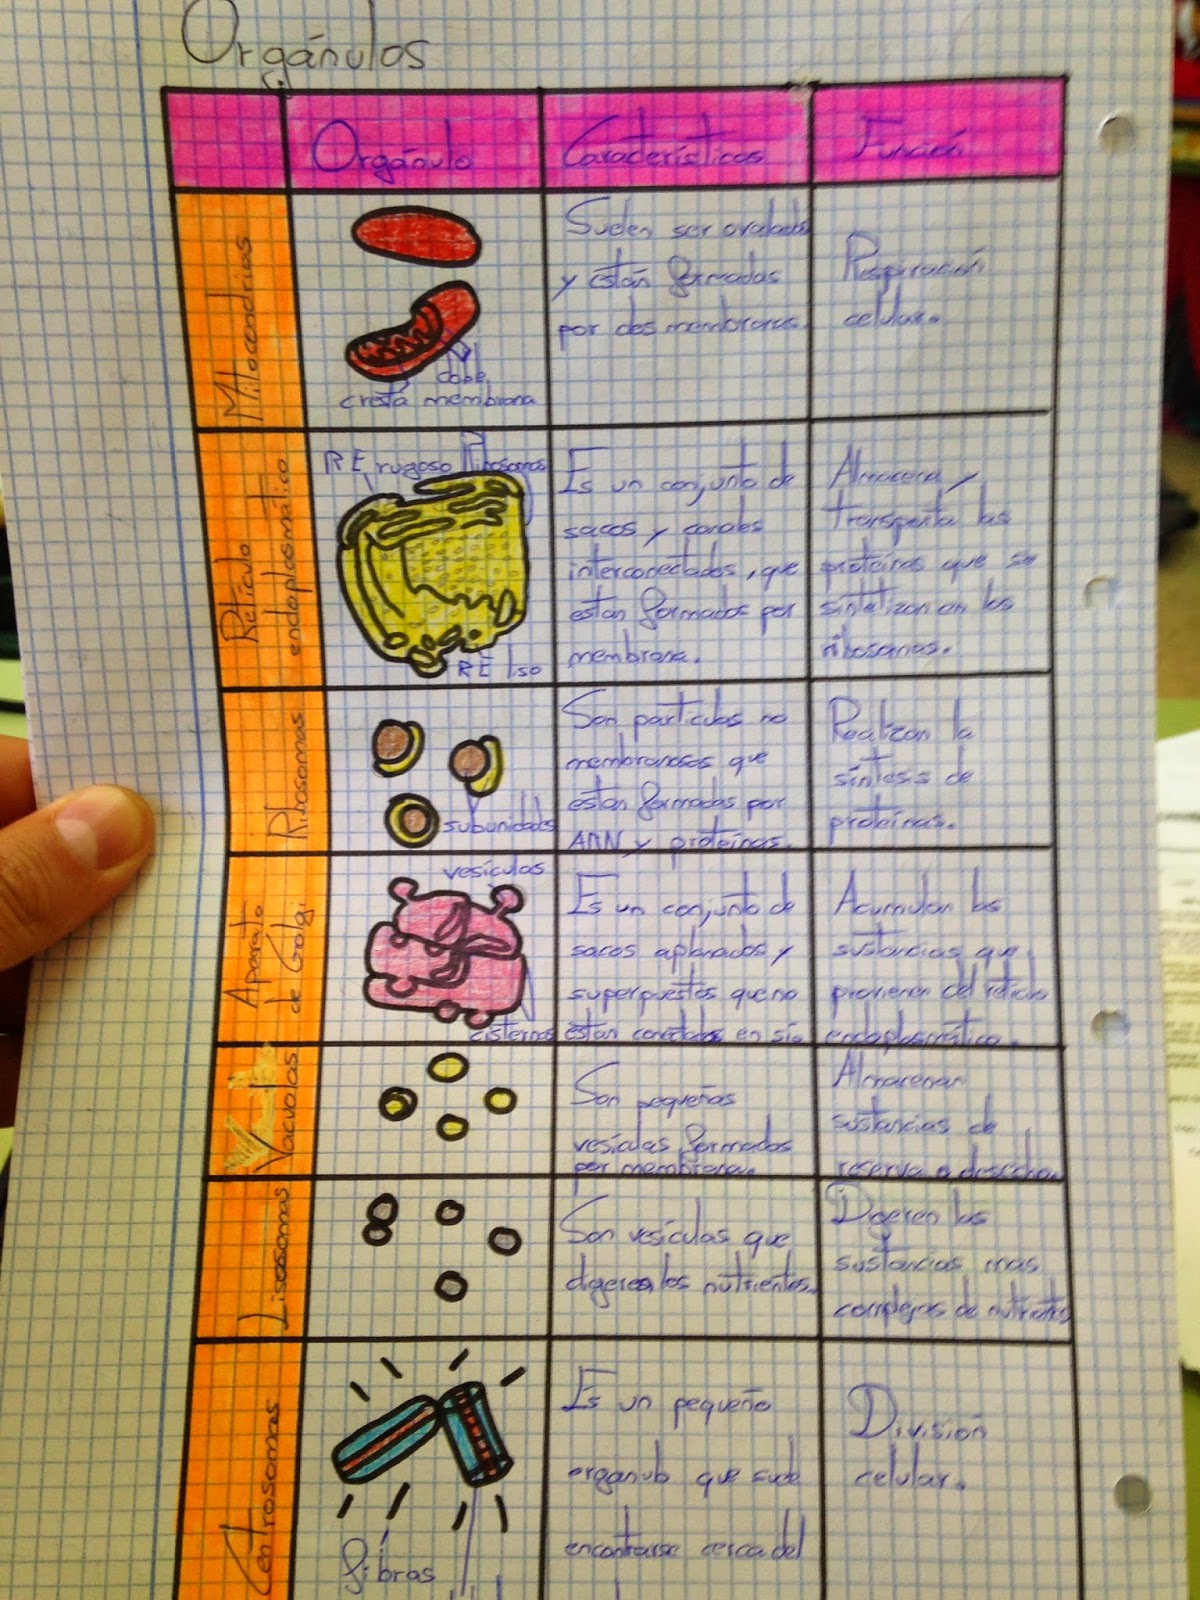 Orgánulos
Orgánulo
Características
Función
Mitocondrias
cresta
doble
membrana
Suelen ser ovalados
y están formadas
por dos membranas.
Respiración
celular.
Retículo
endoplasmático
RE rugoso
Ribosomas
RE liso
Es un conjunto de
sacos y canales
interconectados, que
estan formados por
membrana.
Almacena y
transporta las
proteínas que se
sintetizan en los
ribosomas.
Ribosomas
subunidades
Son partículas no
membranosas que
estan formadas por
ARN y proteínas.
Realizan la
síntesis de
proteínas.
Aparato
de Golgi
vesículas
cisternas
Es un conjunto de
sacos aplanados y
superpuestos que no
estan conectados en sío
Acumulan las
sustancias que
provienen del retículo
endoplasmático.
Vacuolas
Son pequeñas
vesículas formadas
por membrana.
Almacenan
sustancias de
reserva o desecho.
Lisosomas
Son vesículas que
digeren los nutrientes.
Digeren las
sustancias mas
complejas de nutrientes
Centrosomas
fibras
Es un pequeño
organulo que suele
encontrarse cerca del
División
celular.